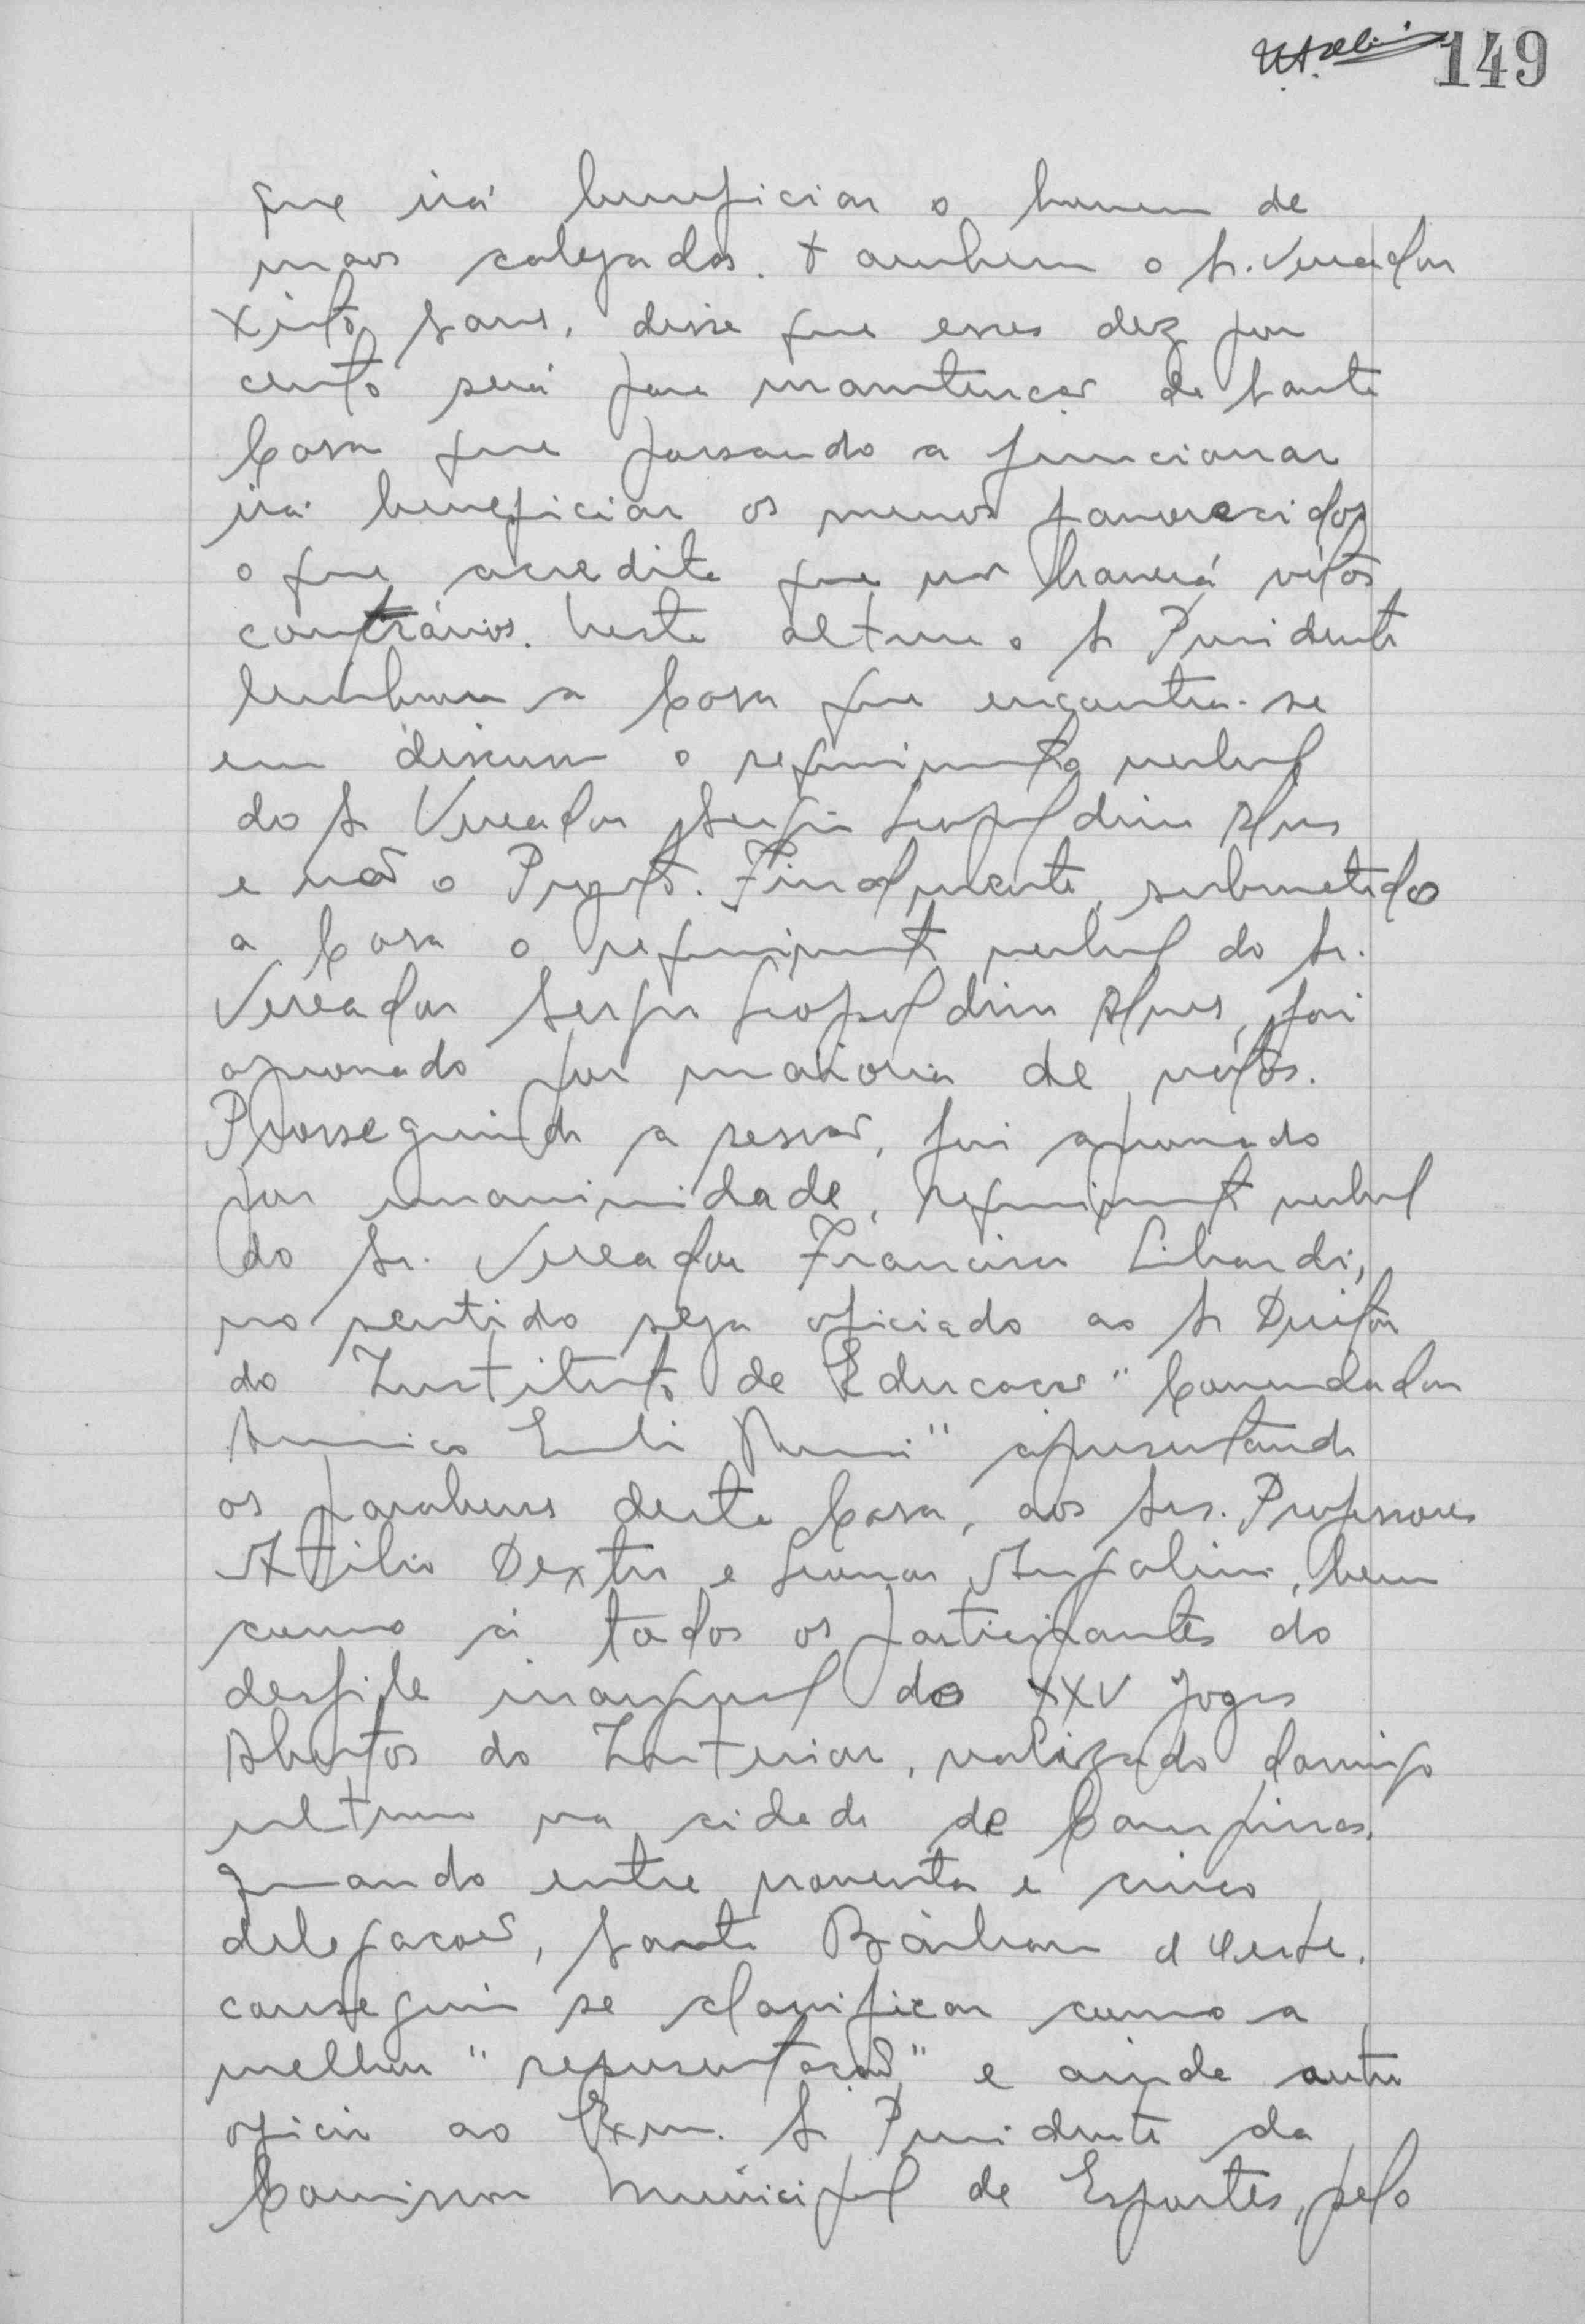 149
que irá beneficiar o homem de
maos calejadas. Tambem o Sr. Vereador
Xisto Sans, disse que esses dez por
cento será para manutencão da Santa
Casa que passando a funcionar
irá beneficiar os menos favorecidos
o que acredita que não haverá vótos
contrários. Nesta altura o Sr Presidente
lembrou a Casa que encontra-se
em discussão o requerimento verbal
do Sr Vereador Sergio Leopoldino Alves
e não o Projeto. Finalmente, submetido
a Casa o requerimento verbal do Sr.
Vereador Sergio Leopoldino Alves, foi
aprovado por maioria de vótos.
Prosseguindo a sessão, foi aprovado
por unanimidade, requerimento verbal
do Sr. Vereador Francisco Libardi,
no sentido seja oficiado ao Sr Diretor
do Instituto de Educacão "Comendador
Americo Emilio Romi" apresentando
os parabens desta Casa, aos Srs. Professores
Atilio Dextro e Leonor Angolini, bem
como á todos os participantes do
desfile inaugural dos XXV Jogos
Abertos do Interior, realizado domingo
ultimo na cidade de Campinas,
quando entre noventa e cinco
delegacoes, Santa Bárbara d'Oeste,
conseguiu se classificar como a
melhor "representacão" e ainda outro
oficio ao Exmo. Sr Presidente da
Comissão Municipal de Esportes, pelo